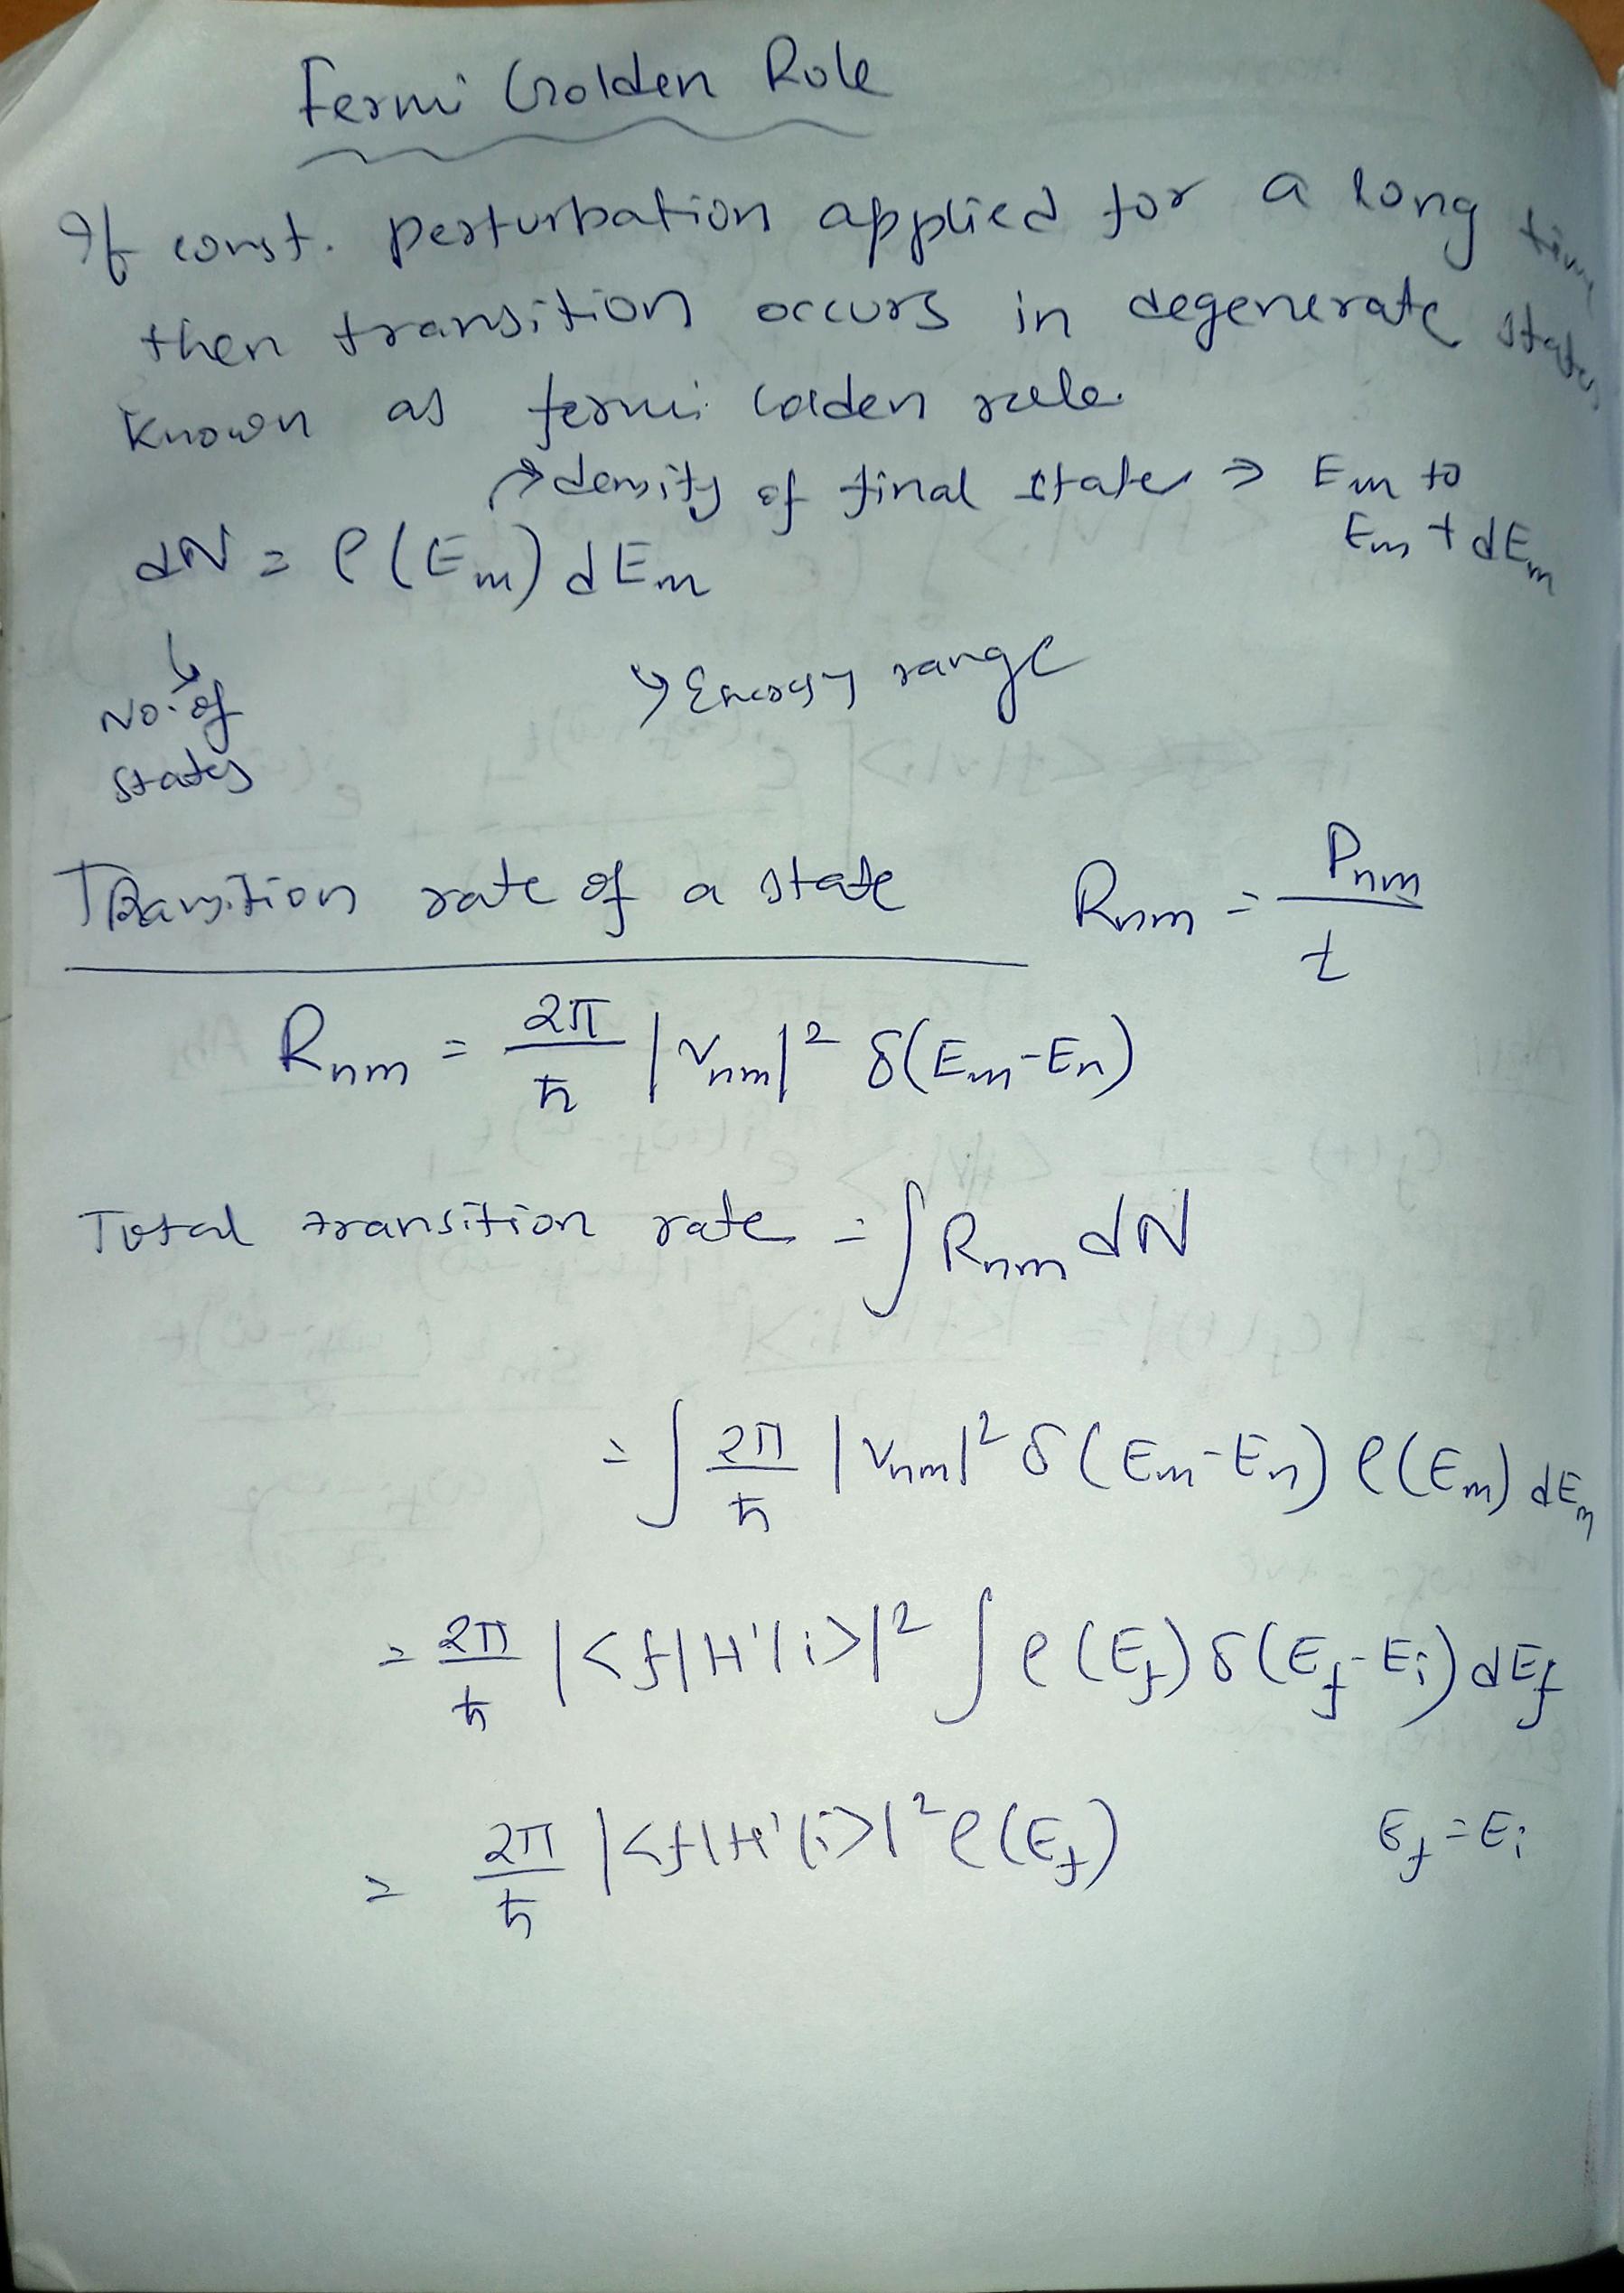 Fermi Golden Rule
If const. perturbation applied for a long time
then transition occurs in degenerate states
known as fermi Golden rule.
→ density of final states ⇒ Em to
Em + dEm
dN = ρ(Em) dEm
↳ Energy range
No. of
states
Transition rate of a state Rnm = Pnm / t
Rnm = 2π/ħ |Vnm|² δ(Em-En)
Total transition rate = ∫ Rnm dN
= ∫ 2π/ħ |Vnm|² δ(Em-En) ρ(Em) dEm
= 2π/ħ |<f|H'|i>|² ∫ ρ(Ef) δ(Ef-Ei) dEf
= 2π/ħ |<f|H'|i>|² ρ(Ef) Ef = Ei